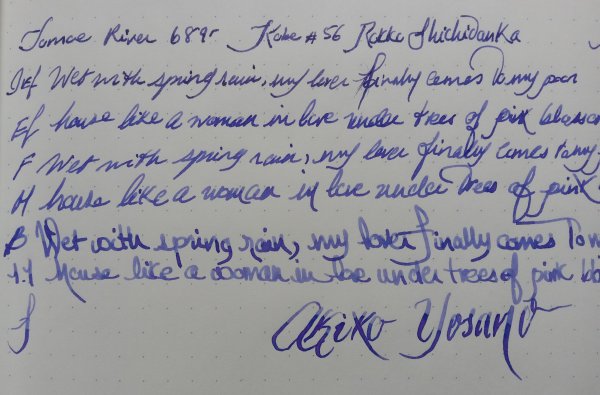 Tomoe River 68gr Kobe #56 Rokko Shichidanka
Wet with spring rain, my lover finally comes to my poor
EF house like a woman in love under trees of pink blossom
F Wet with spring rain, my lover finally comes to my
M house like a woman in love under trees of pink
B Wet with spring rain, my lover finally comes to m
1.1 house like a woman in love under trees of pink blo
Akiko Yosano